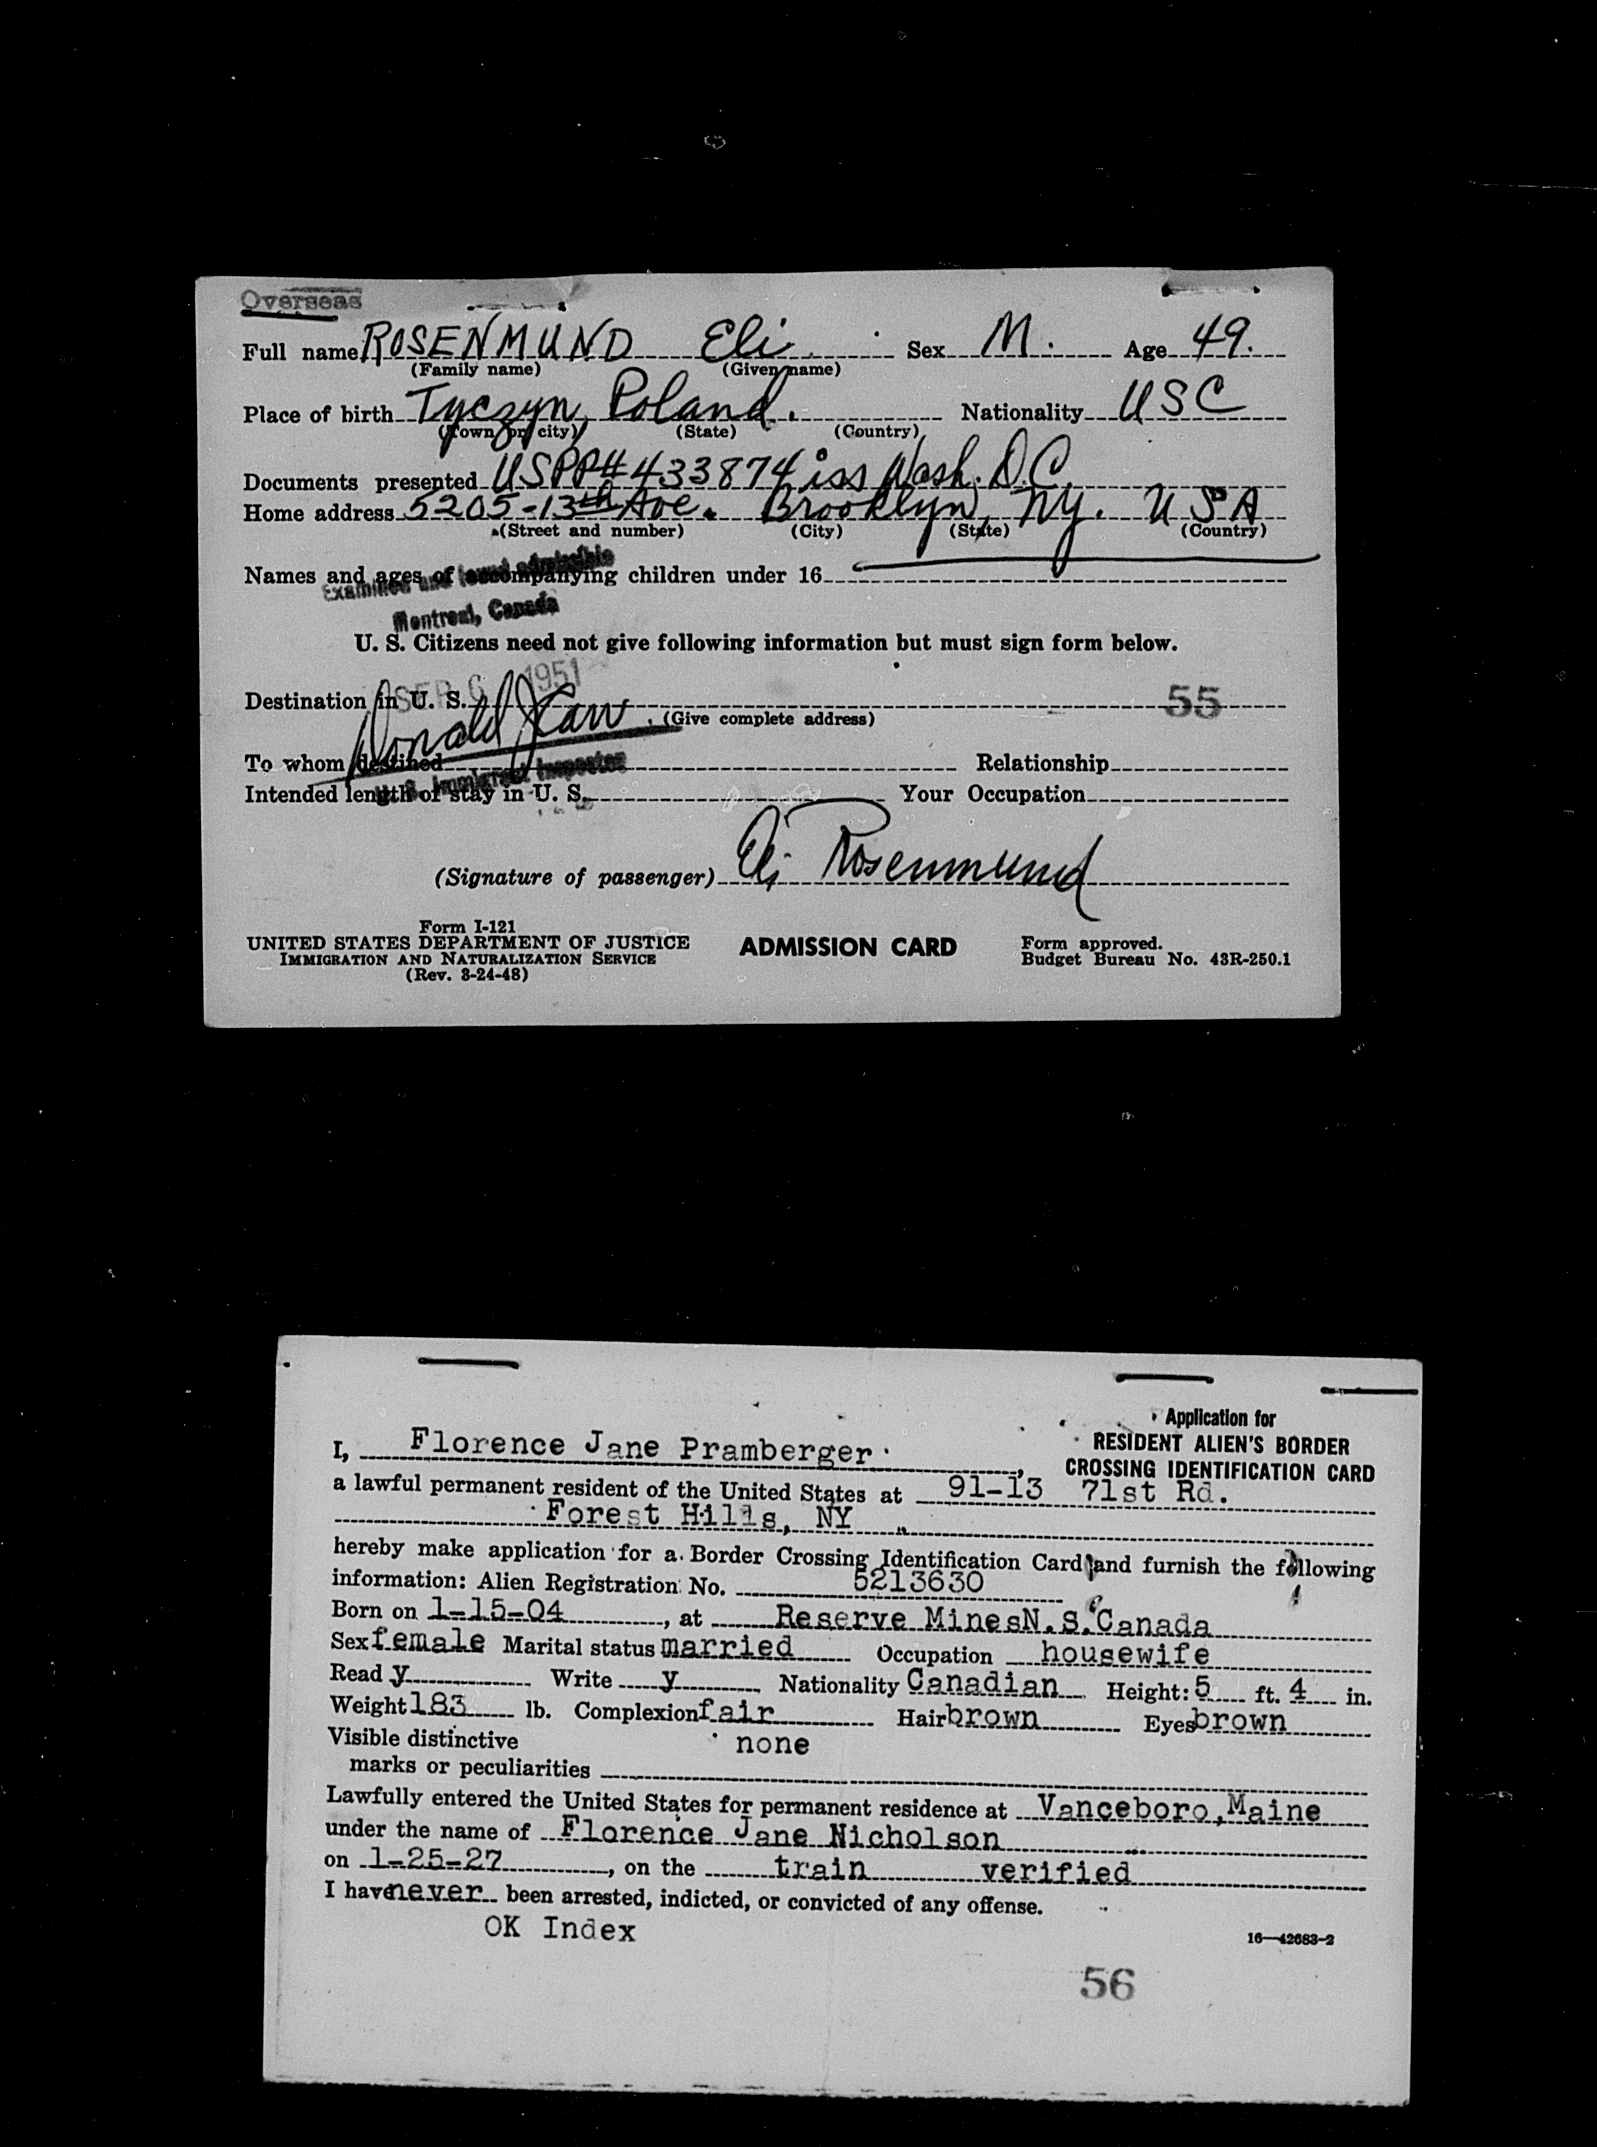 Overseas
Full name ROSENMUND Eli Sex M. Age 49.
(Family name) (Given name)
Place of birth Tyczyn, Poland. Nationality USC
(Town or city) (State) (Country)
Documents presented USPP# 433874 iss Wash. D.C.
Home address 5205-13th Ave. Brooklyn, Ny. USA
(Street and number) (City) (State) (Country)
Names and ages of accompanying children under 16
Examined and found admissible
Montreal, Canada
U. S. Citizens need not give following information but must sign form below.
SEP 6 1951
Destination in U. S. 55
Donald J (Give complete address)
To whom destined Relationship
U. S. Immigrant Inspector
Intended length of stay in U. S. Your Occupation
(Signature of passenger) Eli Rosenmund
Form I-121
UNITED STATES DEPARTMENT OF JUSTICE ADMISSION CARD Form approved.
IMMIGRATION AND NATURALIZATION SERVICE Budget Bureau No. 43R-250.1
(Rev. 3-24-48)
Application for
RESIDENT ALIEN'S BORDER
CROSSING IDENTIFICATION CARD
I, Florence Jane Pramberger,
a lawful permanent resident of the United States at 91-13 71st Rd.
Forest Hills, NY
hereby make application for a Border Crossing Identification Card and furnish the following
information: Alien Registration No. 5213630
Born on 1-15-04, at Reserve Mines N.S. Canada
Sex female Marital status married Occupation housewife
Read y Write y Nationality Canadian Height: 5 ft. 4 in.
Weight 183 lb. Complexion fair Hair brown Eyes brown
Visible distinctive none
marks or peculiarities
Lawfully entered the United States for permanent residence at Vanceboro, Maine
under the name of Florence Jane Nicholson
on 1-25-27, on the train verified
I have never been arrested, indicted, or convicted of any offense.
OK Index
16—42683-2
56